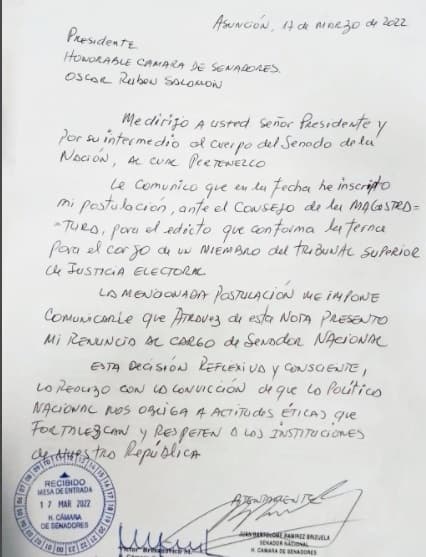 Asunción, 17 de Marzo de 2022
Presidente
Honorable Camara de Senadores.
Oscar Ruben Salomón
Me dirijo a usted señor Presidente y
por su intermedio al cuerpo del Senado de la
Nación, al cual pertenezco
Le comunico que en la fecha he inscripto
mi postulación, ante el Consejo de la Magistra=
=tura, para el edicto que conforma la terna
para el cargo de un miembro del Tribunal Superior
de Justicia Electoral
La mencionada postulación me impone
comunicarle que atravez de esta nota presento
mi renuncia al cargo de Senador Nacional
Esta decisión reflexiva y consciente,
la realizo con la convicción de que la Política
Nacional nos obliga a actitudes éticas que
fortalezcan y respeten a las instituciones
de nuestro República
Atentamente
RECIBIDO
MESA DE ENTRADA
17 MAR 2022
H. CÁMARA
DE SENADORES
JUAN BARTOLOME RAMIREZ BRIZUELA
SENADOR NACIONAL
H. CAMARA DE SENADORES